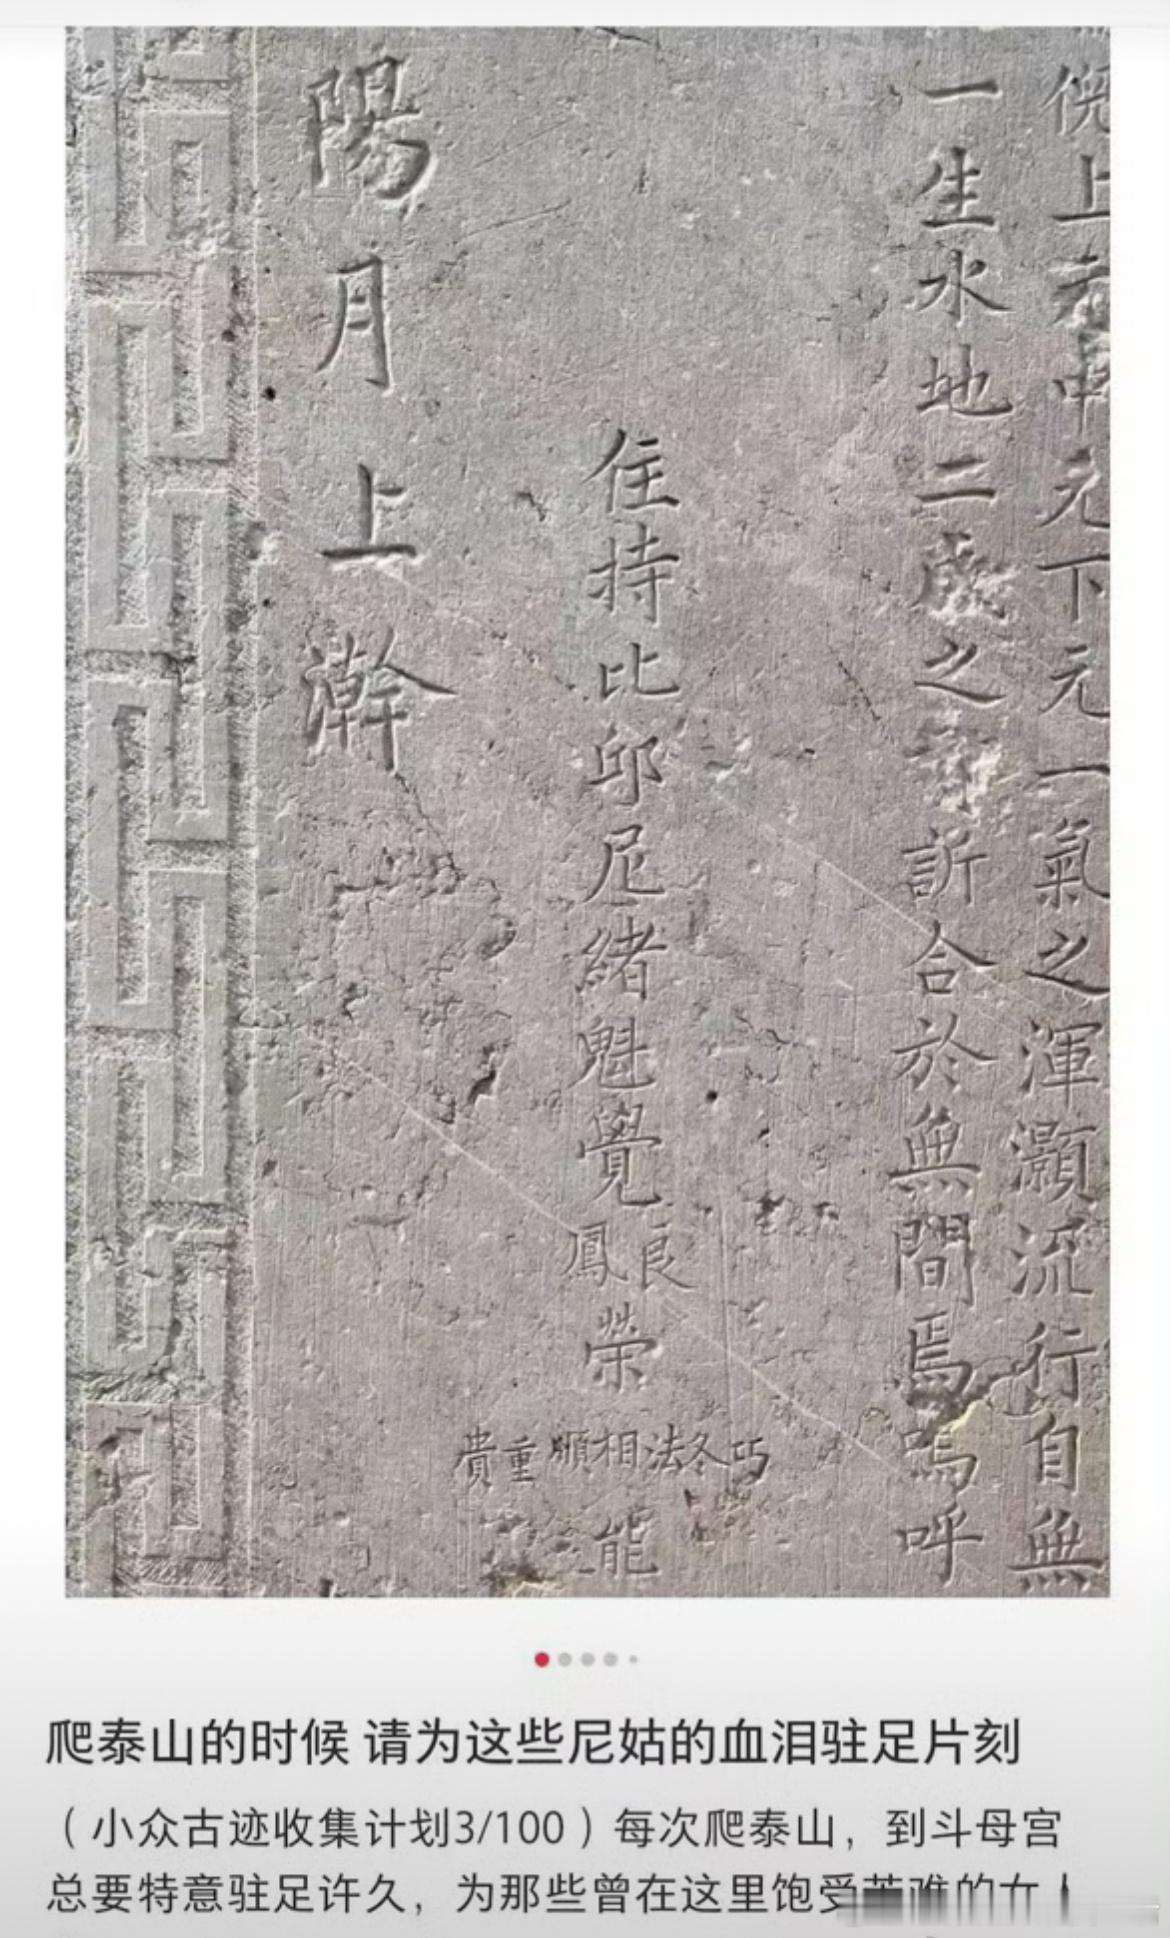 倪上元中元下元一氣之渾灝流行自無
一生水地二成之訢合於無間焉嗚呼
住持比邱尼緒魁覺
良
鳳
榮
巧冬法相順重貴
能
陽月上澣
爬泰山的时候 请为这些尼姑的血泪驻足片刻
（小众古迹收集计划3/100）每次爬泰山，到斗母宫
总要特意驻足许久，为那些曾在这里饱受苦难的女人